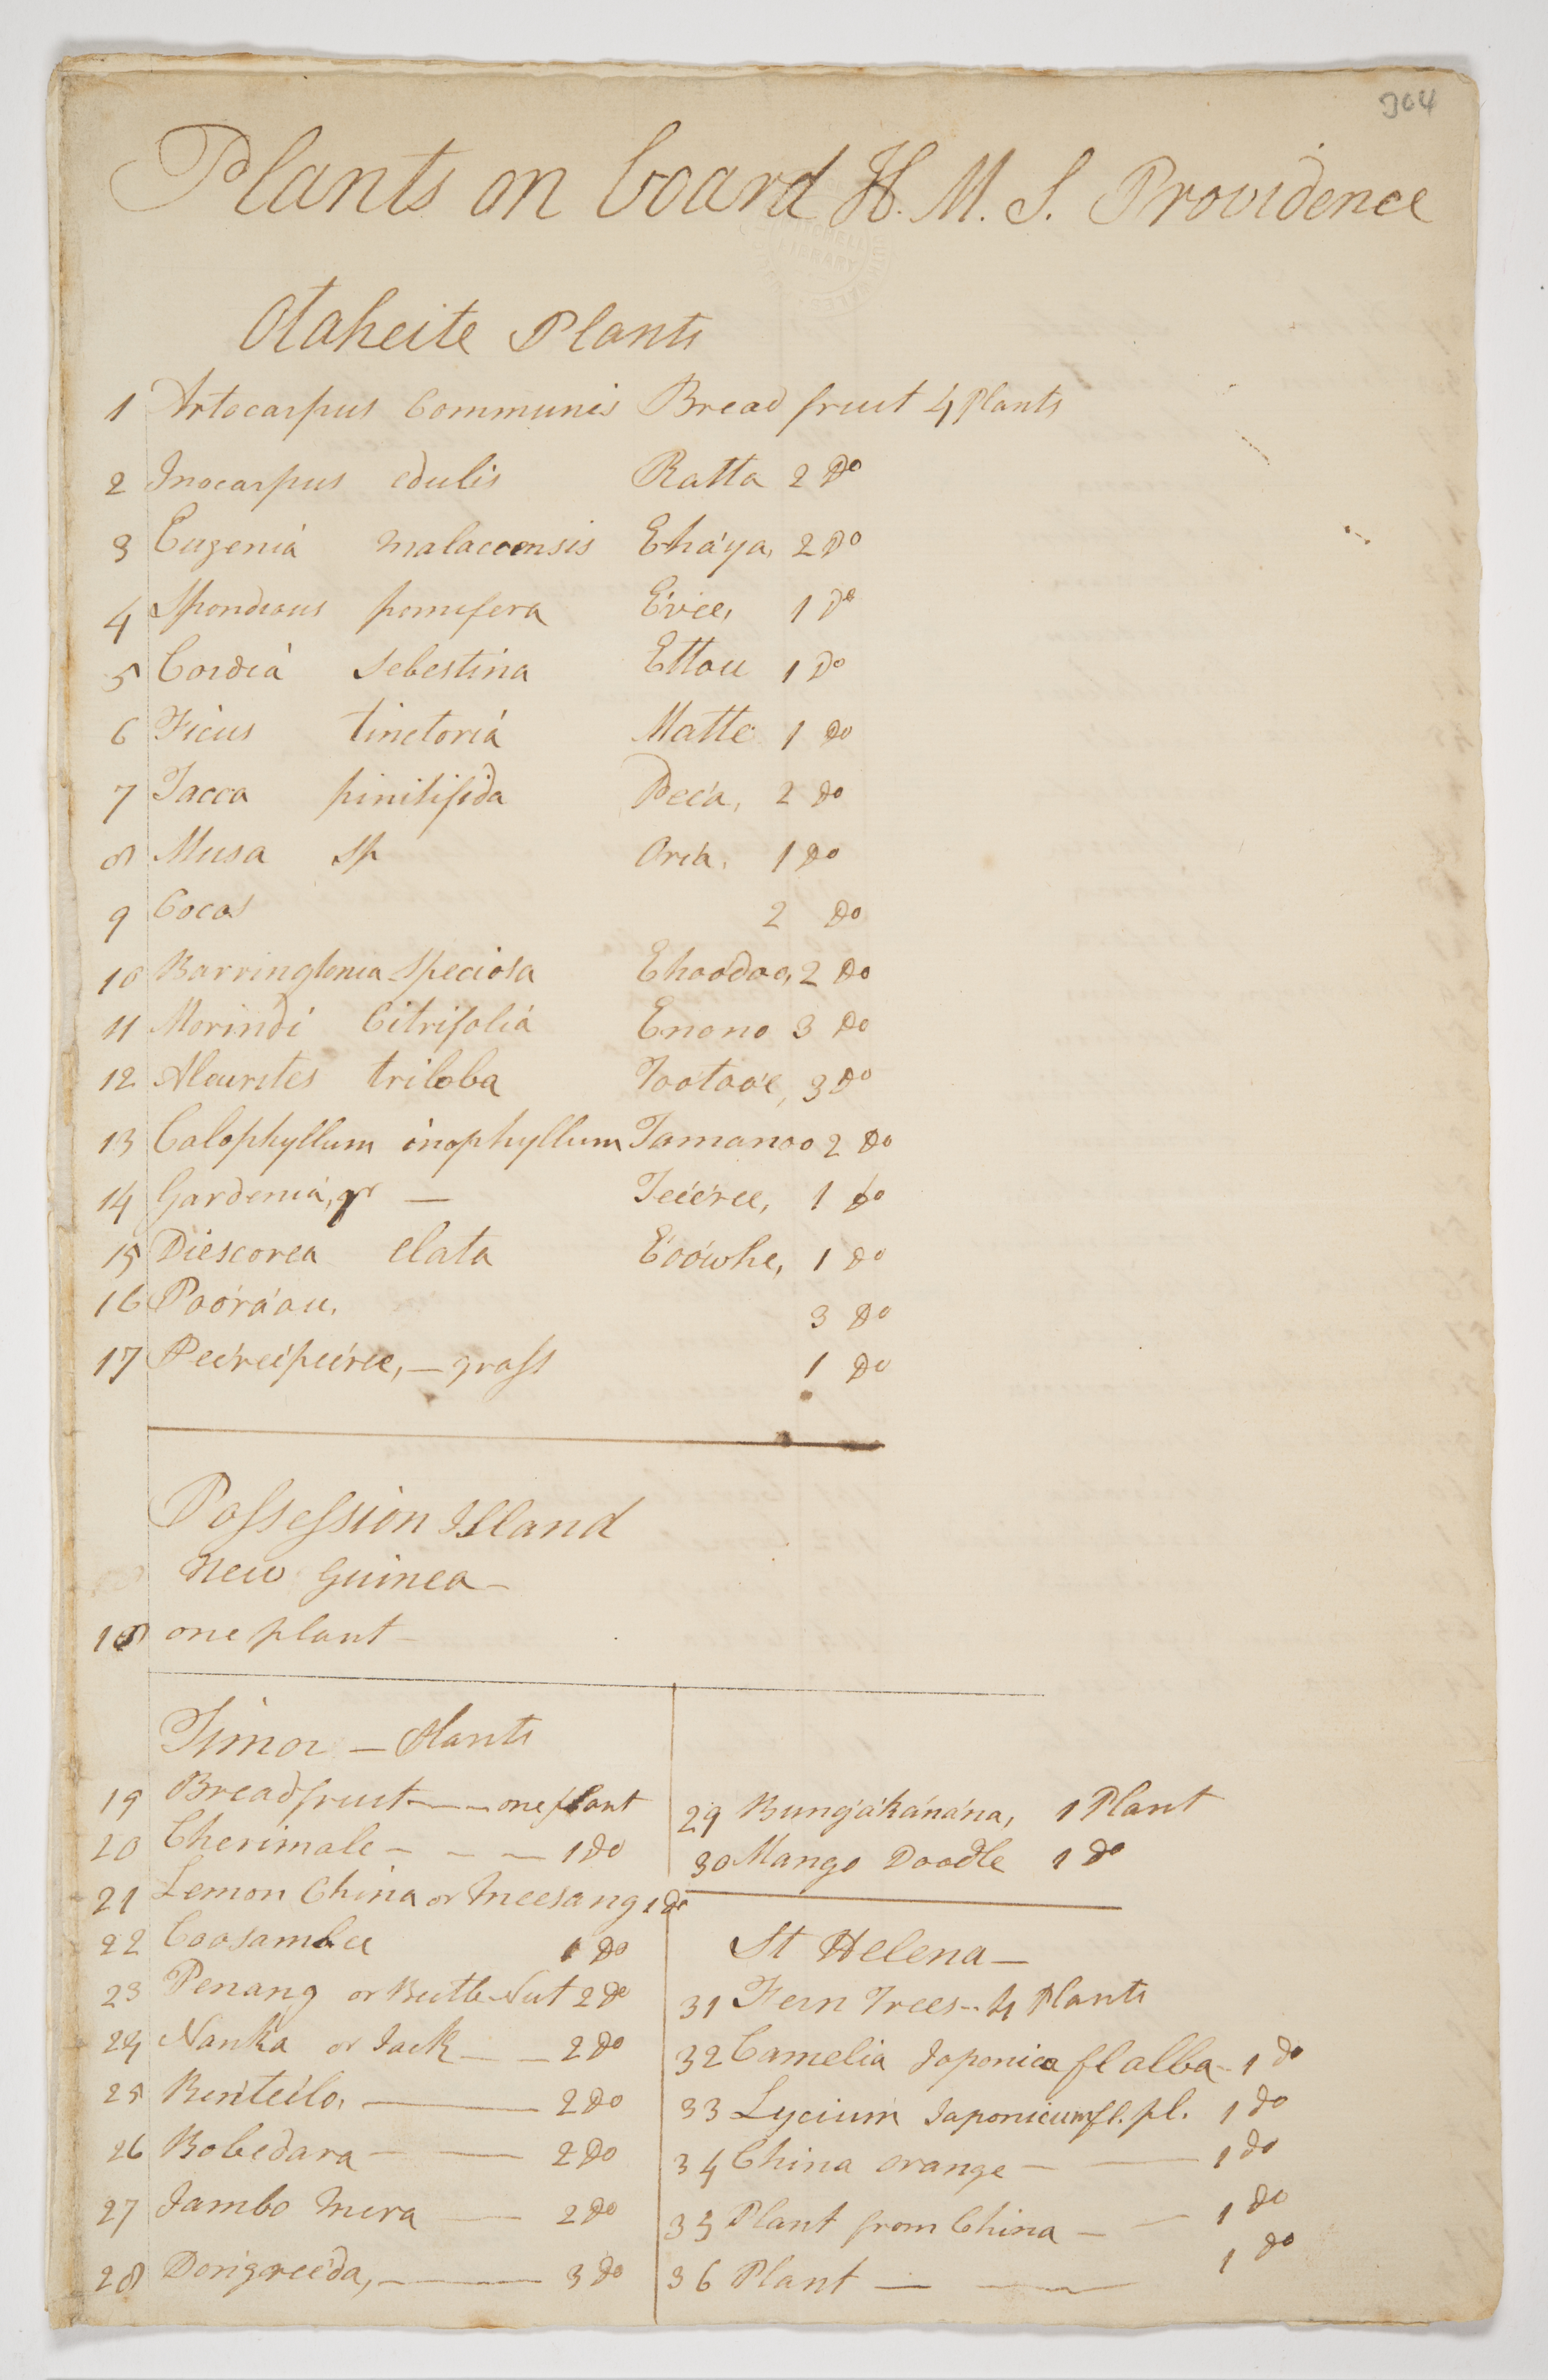 304
Plants on board H. M. S. Providence
Otaheite Plants
1 Artocarpus Communis Bread fruit 4 Plants
2 Inocarpus edulis Ratta 2 Do
3 Eugeniá malaccensis Eháya, 2 Do
4 Spondious pomifera Evee, 1 Do
5 Cordiá Sebestina Ettou 1 Do
6 Ficus tinctoriá Matte 1 Do
7 Tacca pinitifida Peéa, 2 Do
8 Musa Sp Oréa, 1 Do
9 Cocos 2 Do
10 Barringtonia Speciosa Ehoodoo, 2 Do
11 Morindi Citrifoliá Enono 3 Do
12 Aleurites triloba Tootooe, 3 Do
13 Calophyllum inophyllum Tamanoo 2 Do
14 Gardeniá, — Teéeree, 1 Do
15 Diescorea elata Eoówhe, 1 Do
16 Paoráou, 3 Do
17 Peéreépeéree, — grass 1 Do
Possession Island
New Guinea —
18 one plant —
Timor — Plants
19 Breadfruit — — one plant
20 Cherimale — — — 1 Do
21 Lemon China or Meesang 1 Do
22 Coosambee 1 Do
23 Penang or Beetle Nut 2 Do
24 Nanka or Jack — — 2 Do
25 Benteélo, — 2 Do
26 Bobedara — — 2 Do
27 Jambo mera — 2 Do
28 Dongreéda, — 3 Do
29 Bungákánána, 1 Plant
30 Mango Doodle 1 Do
St Helena —
31 Fern Trees — 4 Plants
32 Camelia Japonica fl alba — 1 Do
33 Lycium Japonicum fl. pl. 1 Do
34 China orange — — 1 Do
35 Plant from China — — 1 Do
36 Plant — — 1 Do